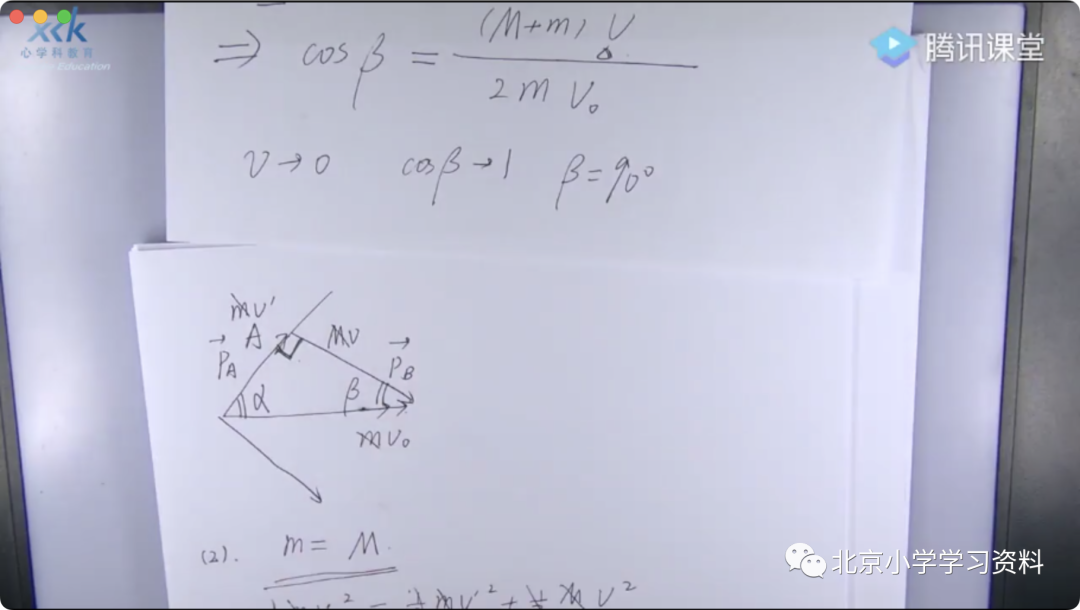 xxk
心学科教育
Education
腾讯课堂
⇒ cosβ = (M+m) v / 2 m v₀
v→0 cosβ→1 β=90°
mv'
A Mv
P⃗_A P⃗_B
α β
mv₀
(2). m = M.
mv'² + ½ M v²
北京小学学习资料